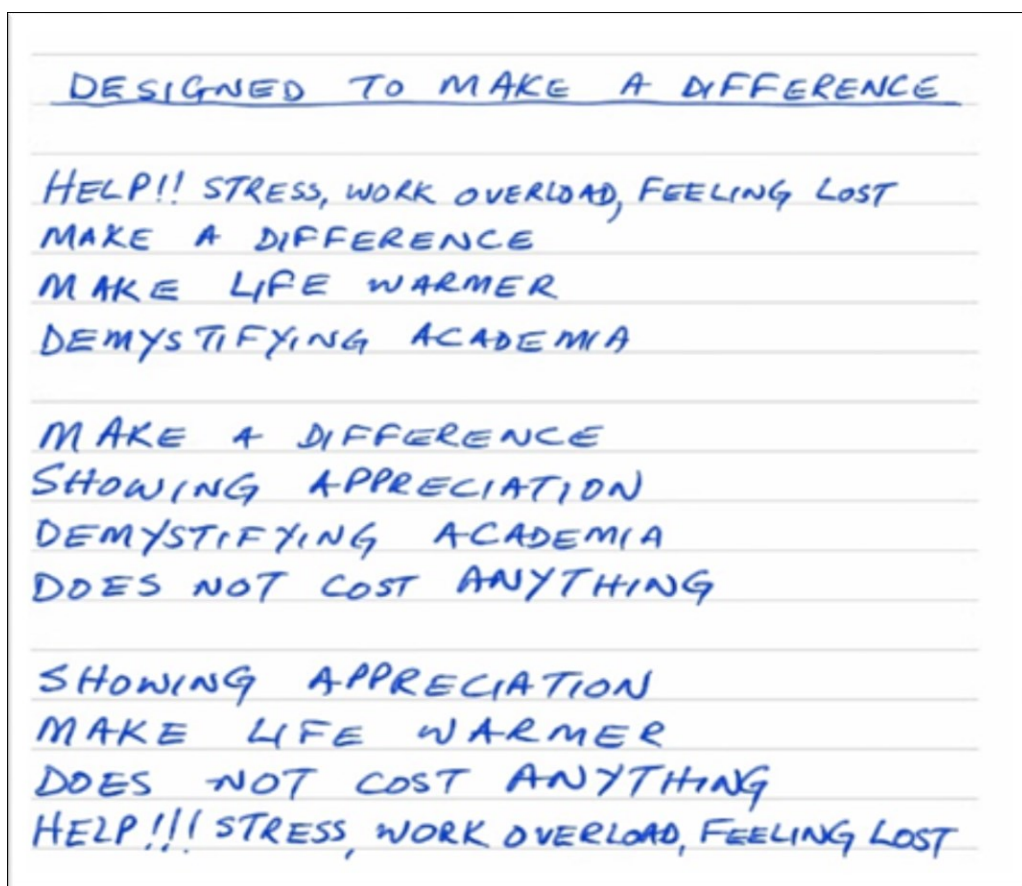 DESIGNED TO MAKE A DIFFERENCE
HELP!! STRESS, WORK OVERLOAD, FEELING LOST
MAKE A DIFFERENCE
MAKE LIFE WARMER
DEMYSTIFYING ACADEMIA
MAKE A DIFFERENCE
SHOWING APPRECIATION
DEMYSTIFYING ACADEMIA
DOES NOT COST ANYTHING
SHOWING APPRECIATION
MAKE LIFE WARMER
DOES NOT COST ANYTHING
HELP!!! STRESS, WORK OVERLOAD, FEELING LOST